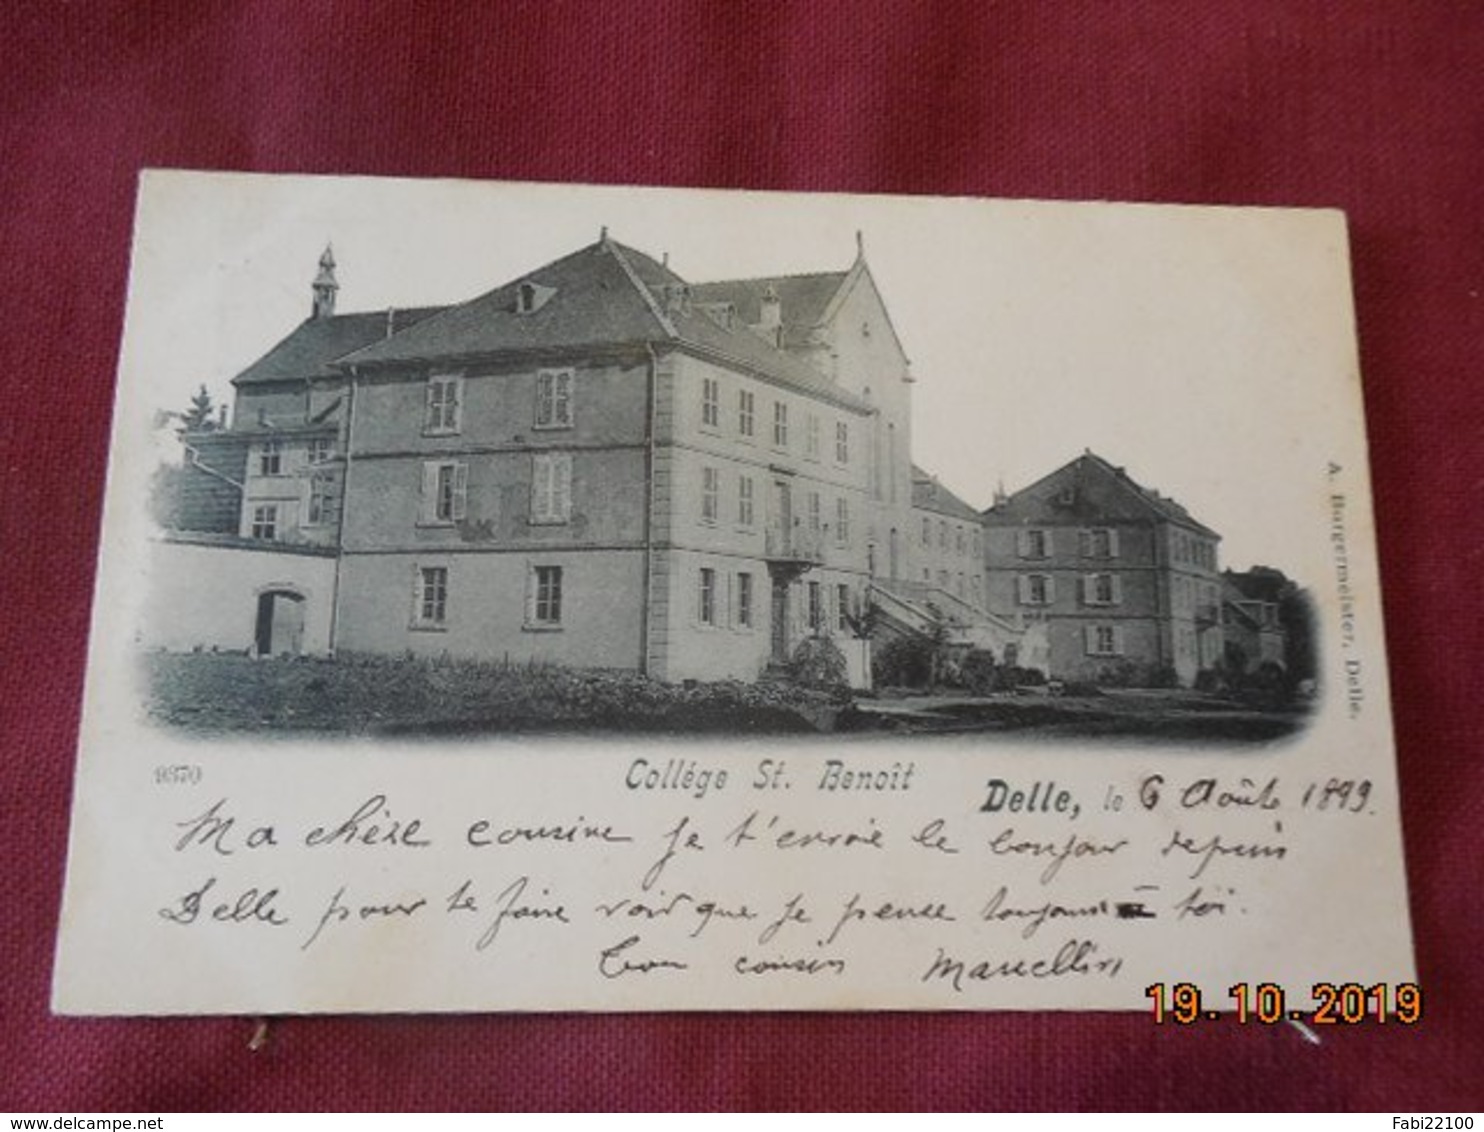 A. Burgermeister, Delle.
9370
Collége St. Benoît
Delle, le 6 Août 1899.
Ma chère cousine je t'envoie le bonjour depuis
Delle pour te faire voir que je pense toujours à toi.
Ton cousin Marcellin
19.10.2019
delcampe.net
Fabi22100